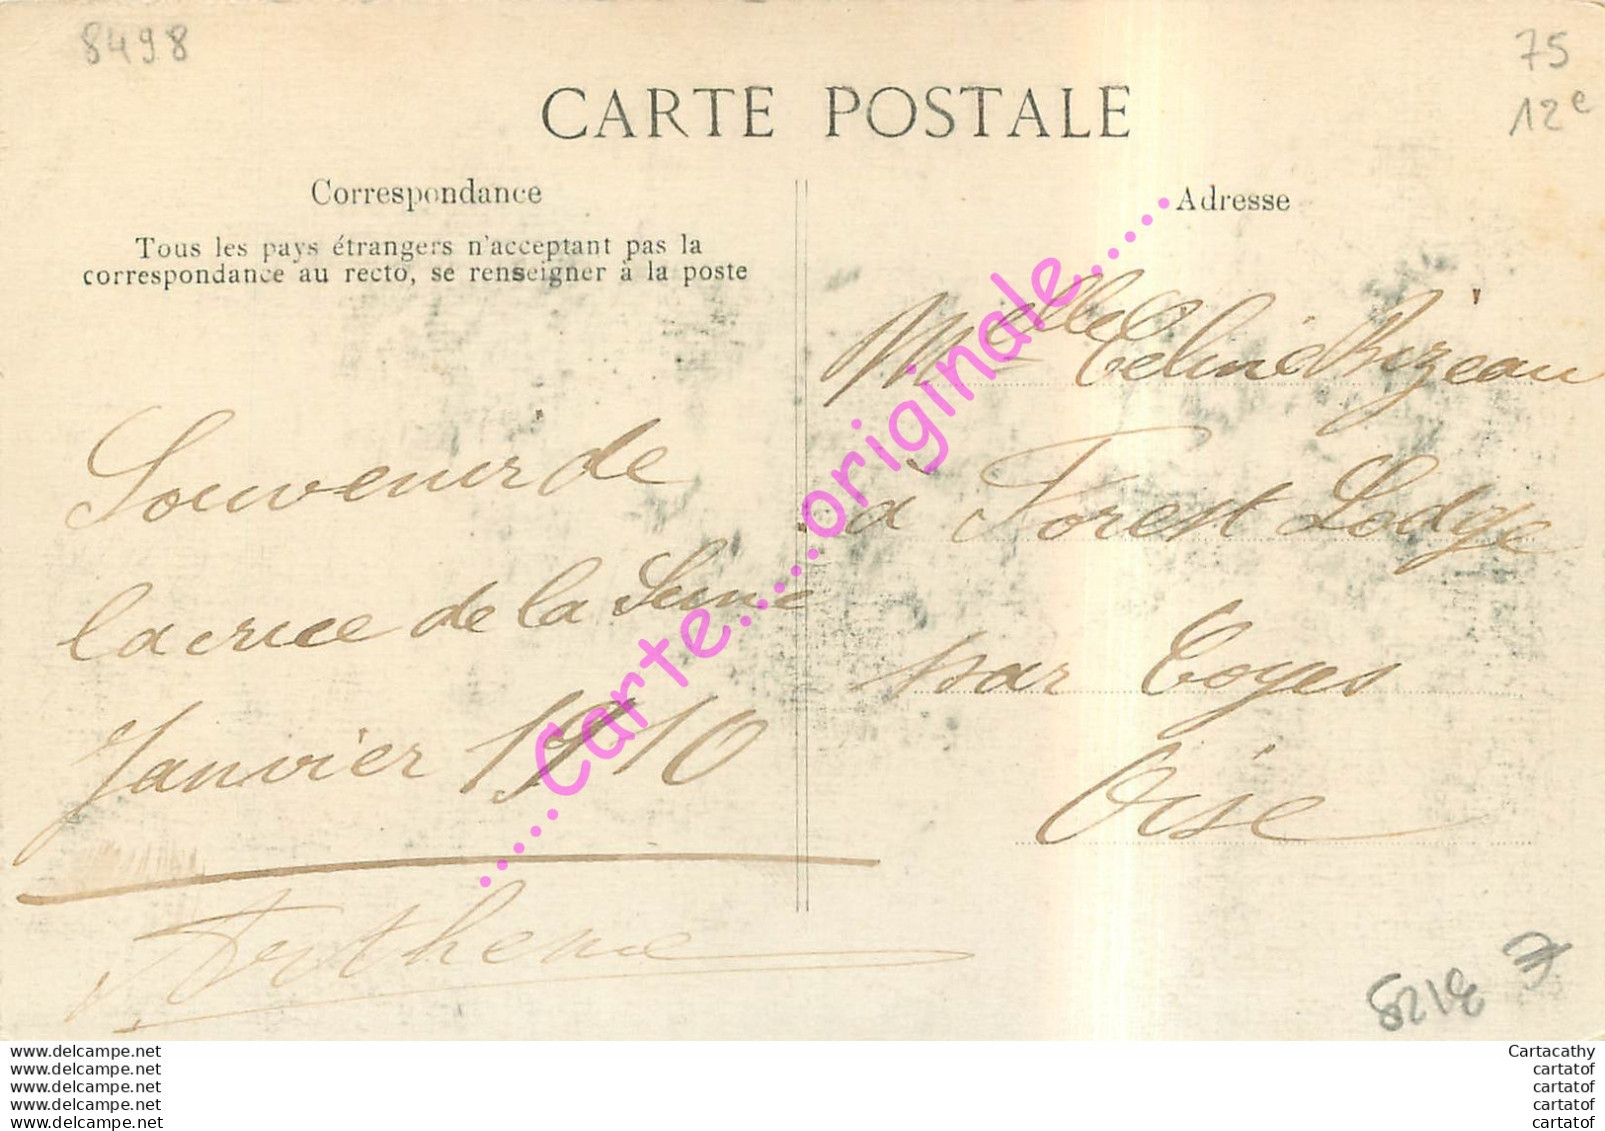 8498
75
12e
CARTE POSTALE
Correspondance
Tous les pays étrangers n'acceptant pas la
correspondance au recto, se renseigner à la poste
Souvenir de
la crue de la Seine
Janvier 1910
Arthème
Adresse
Melle Celine Rizeau
à Forest Lodge
par Coyes
Oise
.....Carte.....originale.....
www.delcampe.net
www.delcampe.net
www.delcampe.net
www.delcampe.net
www.delcampe.net
Cartacathy
cartatof
cartatof
cartatof
cartatof